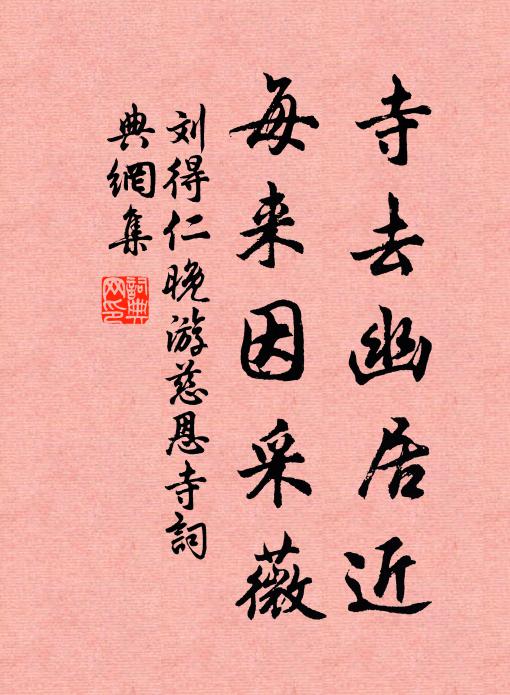 寺去幽居近
每来因采薇
刘得仁晚游慈恩寺詞
典網集
詞典
网印